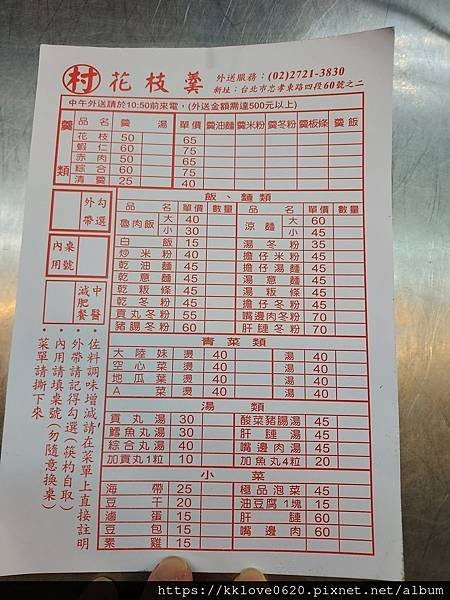 村 花枝羹 外送服務：(02)2721-3830
新址：台北市忠孝東路四段60號之二
中午外送請於10:50前來電，(外送金額需達500元以上)
羹類 品名 羹湯 單價 羹油麵 羹米粉 羹冬粉 羹板條 羹飯
花枝 50 65
蝦仁 60 75
赤肉 50 65
綜合 60 75
清羹 25 40
外帶 勾選
內用 桌號
減肥餐 中醫
飯、麵類
品名 單價 數量 品名 單價 數量
魯肉飯 大 40 涼麵 大 60
小 30 小 45
白飯 15 湯冬粉 35
炒米粉 40 擔仔米粉 45
乾油麵 45 擔仔湯麵 45
乾意麵 45 湯意麵 45
乾粄條 45 湯粄條 45
乾冬粉 45 擔仔冬粉 45
貢丸冬粉 55 嘴邊肉冬粉 70
豬腸冬粉 60 肝膶冬粉 70
青菜類
大陸妹 燙 40 湯 40
空心菜 燙 40 湯 40
地瓜葉 燙 40 湯 40
A菜 燙 40 湯 40
湯類
貢丸湯 30 酸菜豬腸湯 45
鱈魚丸湯 30 肝膶湯 45
綜合丸湯 40 嘴邊肉湯 45
加貢丸1粒 10 加魚丸4粒 20
小菜
海帶 25 極品泡菜 45
豆干 20 油豆腐1塊 15
滷蛋 15 肝膶 60
豆包 15 嘴邊肉 60
素雞 15
•佐料調味增減請在菜單上直接註明
•外帶請記得勾選(筷杓自取)
•內用請填桌號(勿隨意換桌)
•菜單請撕下來
https://kklove0620.pixnet.net/album